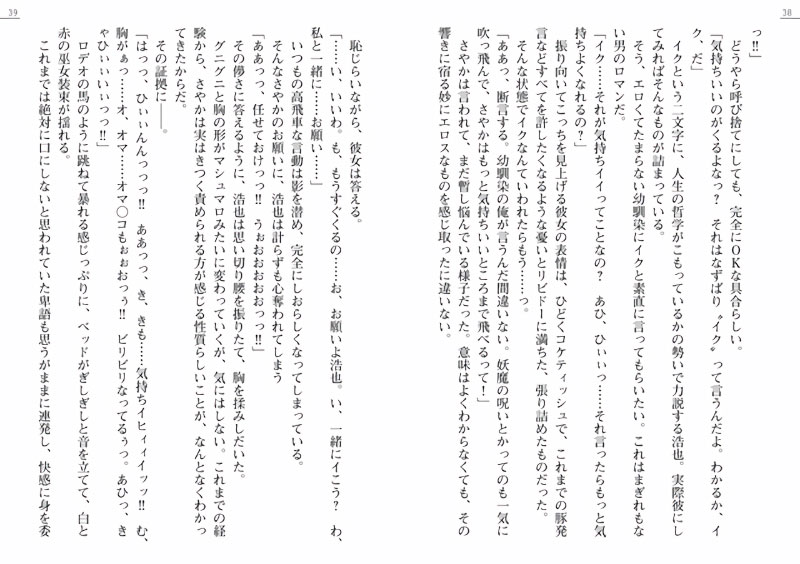 38
っ‼」
どうやら呼び捨てにしても、完全にOKな具合らしい。
「気持ちいいのがくるよなっ？　それはなずばり〝イク〟って言うんだよ。わかるか、イ
ク、だ」
イクという二文字に、人生の哲学がこもっているかの勢いで力説する浩也。実際彼にし
てみればそんなものが詰まっている。
そう、エロくてたまらない幼馴染にイクと素直に言ってもらいたい。これはまぎれもな
い男のロマンだ。
「イク……それが気持ちイイってことなの？　あひ、ひぃぃっ……それ言ったらもっと気
持ちよくなれるの？」
振り向いてこっちを見上げる彼女の表情は、ひどくコケティッシュで、これまでの豚発
言などすべてを許したくなるような憂いとリビドーに満ちた、張り詰めたものだった。
そんな状態でイクなんていわれたらもう……っ！
「ああっ、断言する。幼馴染の俺が言うんだ間違いない。妖魔の呪いとかってのも一気に
吹っ飛んで、さやかはもっと気持ちいいところまで飛べるって！」
さやかは言われて、まだ暫し悩んでいる様子だった。意味はよくわからなくても、その
響きに宿る妙にエロスなものを感じ取ったに違いない。
39
恥じらいながら、彼女は答える。
「……い、いいわ。も、もうすぐくるの……お、お願いよ浩也。い、一緒にイこう？　わ、
私と一緒に……お願い……」
いつもの高飛車な言動は影を潜め、完全にしおらしくなってしまっている。
そんなさやかのお願いに、浩也は計らずも心奪われてしまう
「ああっっ、任せておけっっ‼　うぉおおおおおっっ‼」
その儚さに答えるように、浩也は思い切り腰を振りたて、胸を揉みしだいた。
グニグニと胸の形がマシュマロみたいに変わっていくが、気にはしない。これまでの経
験から、さやかは実はきつく責められる方が感じる性質らしいことが、なんとなくわかっ
てきたからだ。
その証拠に――。
「はっっ、ひぃぃんんっっっ‼　ああっっ、き、きも……気持ちイヒィィイッッ‼　む、
胸がぁっ……オ、オマ……オマ〇コもぉぉおっぅ‼　ビリビリなってるぅっ。あひっ、き
ゃひぃぃいぃっっ‼」
ロデオの馬のように跳ねて暴れる感じっぷりに、ベッドがぎしぎしと音を立てて、白と
赤の巫女装束が揺れる。
これまでは絶対に口にしないと思われていた卑語も思うがままに連発し、快感に身を委